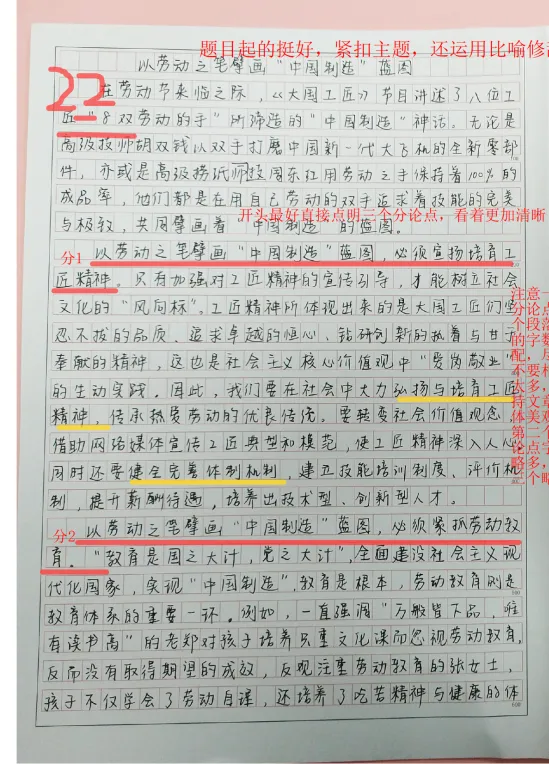 题目起的挺好，紧扣主题，还运用比喻修
以劳动之笔擘画“中国制造”蓝图
22
在劳动节来临之际，《大国工匠》节目讲述了八位工
匠“8双劳动的手”所缔造的“中国制造”神话。无论是
高级技师胡双钱以双手打磨中国新一代大飞机的全新零部
件，亦或是高级捞纸师周东红用劳动之手保持着100%的
成品率，他们都是在用自己劳动的双手追求着技能的完美
与极致，共同擘画着“中国制造”的蓝图。
开头最好直接点明三个分论点，看着更加清晰
分1
以劳动之笔擘画“中国制造”蓝图，必须宣扬培育工
匠精神。只有加强对工匠精神的宣传引导，才能树立社会
文化的“风向标”。工匠精神所体现出来的是大国工匠们坚
忍不拔的品质、追求卓越的恒心、钻研创新的执着与甘于
奉献的精神，这也是社会主义核心价值观中“爱岗敬业”
的生动实践。因此，我们要在社会中大力弘扬与培育工匠
精神，传承热爱劳动的优良传统。要转变社会价值观念，
借助网络媒体宣传工匠典型和模范，使工匠精神深入人心。
同时还要健全完善体制机制，建立技能培训制度、评价机
制，提升薪酬待遇，培养出技术型、创新型人才。
注意一
分论点
个段落
的字数
配，尽
不要相
太多，
持文章
体美观
第二个
论点字
略多，
三个略
分2
以劳动之笔擘画“中国制造”蓝图，必须紧抓劳动教
育。“教育是国之大计，党之大计”，全面建设社会主义现
代化国家，实现“中国制造”，教育是根本，劳动教育则是
教育体系的重要一环。例如，一直强调“万般皆下品，唯
有读书高”的老郑对孩子培养只重文化课而忽视劳动教育，
反而没有取得期望的成效，反观注重劳动教育的张女士，
孩子不仅学会了劳动自理，还培养了吃苦精神与健康的体